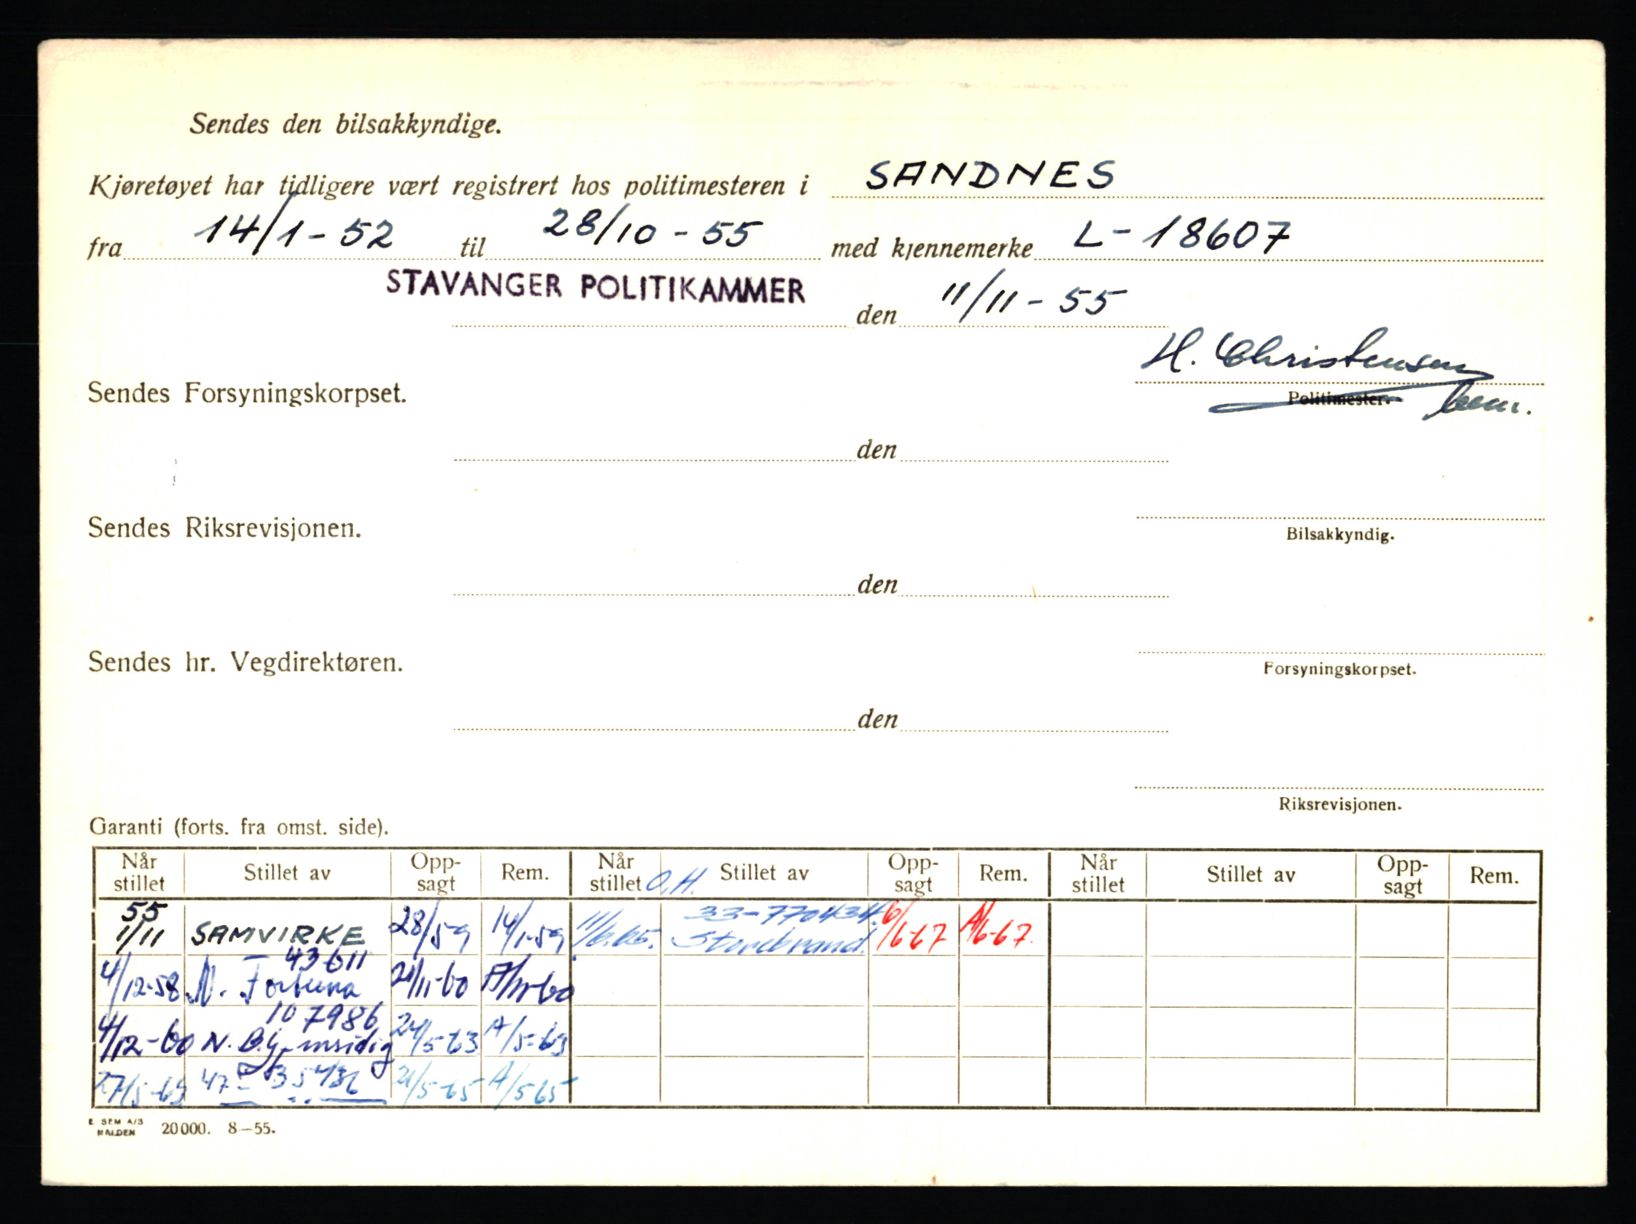 Sendes den bilsakkyndige.
Kjøretøyet har tidligere vært registrert hos politimesteren i SANDNES
fra 14/1-52 til 28/10-55 med kjennemerke L-18607
STAVANGER POLITIKAMMER den 11/11-55
H. Christensen
Sendes Forsyningskorpset.
Politimester.
den
Sendes Riksrevisjonen.
Bilsakkyndig.
den
Sendes hr. Vegdirektøren.
Forsyningskorpset.
den
Riksrevisjonen.
Garanti (forts. fra omst. side).
Når stillet Stillet av Opp-sagt Rem. Når stillet Stillet av Opp-sagt Rem. Når stillet Stillet av Opp-sagt Rem.
O.H.
55 33-770434
1/11 SAMVIRKE 28/5-59 14/1-59 11/6.65. Storebrand. 6/6-67 A/6-67.
43611
4/12-58 N. Fortuna 21/11-60
107986
4/12-60 24/5-63 A/5-63
27/5-63 21/5-65 A/5-65
E. SEM A/S
HALDEN 20000. 8—55.